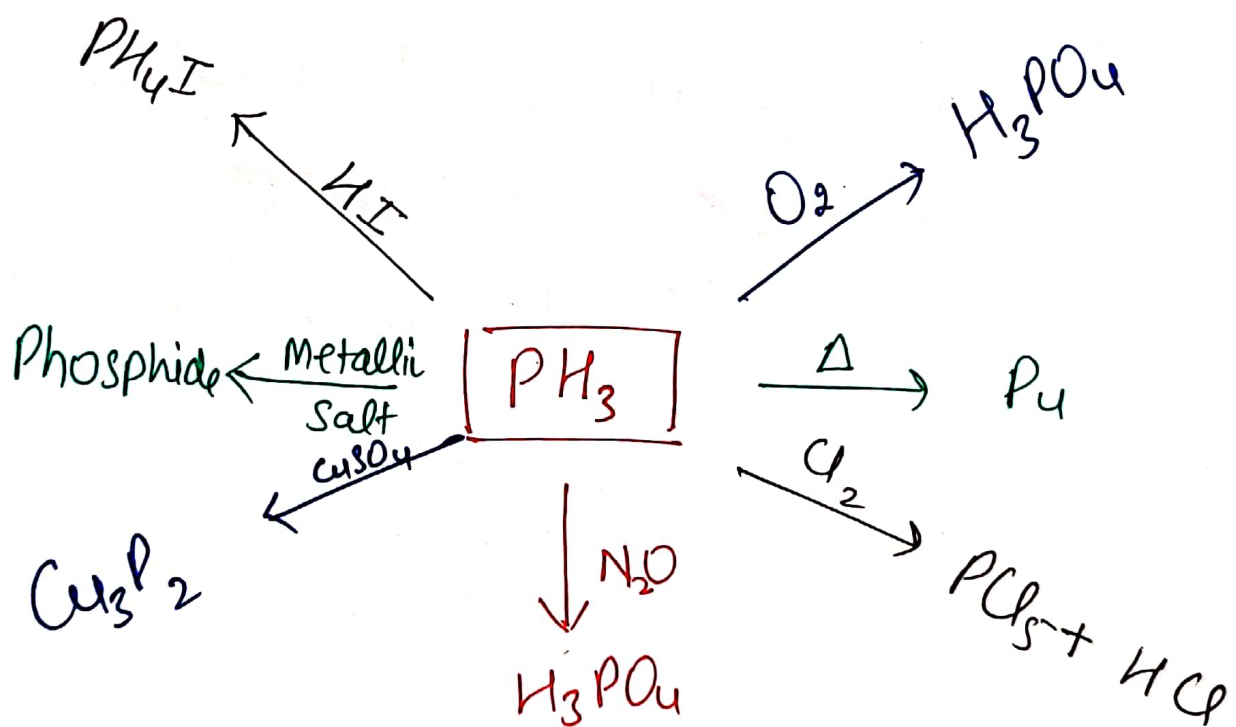 PH4I
H3PO4
HI
O2
Phosphide
Metallic
Salt
PH3
Δ
P4
CuSO4
Cl2
Cu3P2
N2O
PCl5 + HCl
H3PO4